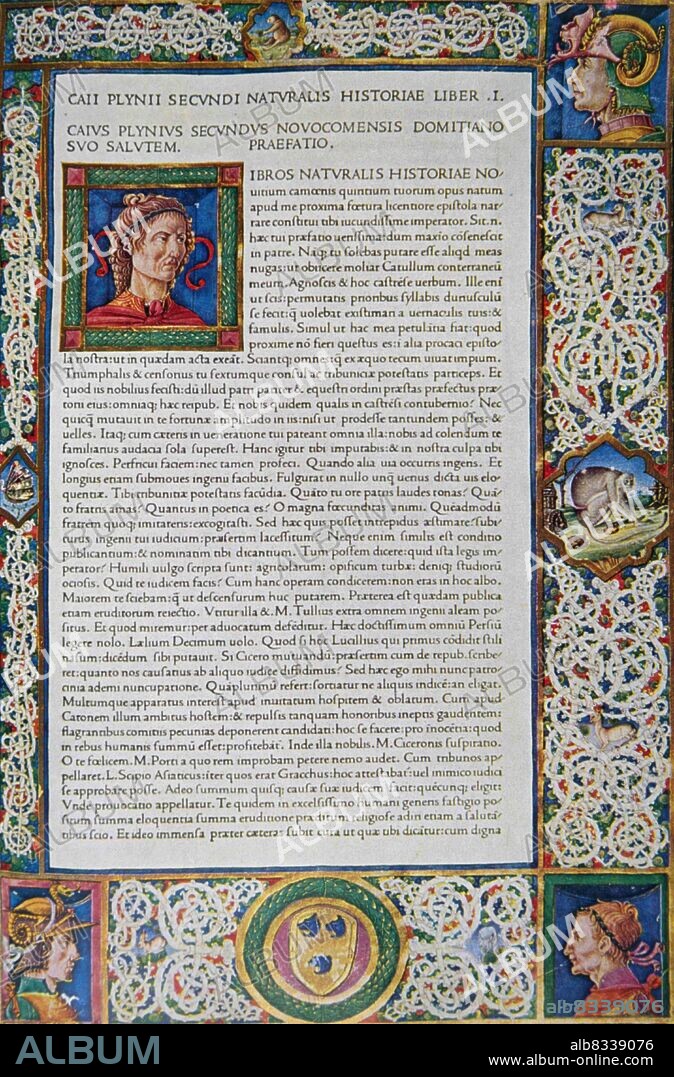 CAII PLYNII SECVNDI NATVRALIS HISTORIAE LIBER .I.
CAIVS PLYNIVS SECVNDVS NOVOCOMENSIS DOMITIANO
SVO SALVTEM. PRAEFATIO.
IBROS NATVRALIS HISTORIAE NO
uitium camœnis quiritium tuorum opus natum
apud me proxima fœtura licentiore epistola nar
rare constitui tibi iucundissime imperator. Sit.n.
hæc tui præfatio uerissima: dum maxio cōsenescit
in patre. Nāq; tu solebas putare esse aliqd meas
nugas: ut obiicere moliar Catullum conterraneū
meum. Agnoscis & hoc castrēse uerbum. Ille enī
ut scis: permutatis prioribus syllabis duriusculū
se fecit: q̄ uolebat existimari a uernaculis tuis: &
famulis. Simul ut hac mea petulātia fiat: quod
proxime nō fieri questus es: ī alia procaci episto
la nostra: ut in quædam acta exeāt. Sciantq; omnes: q̄ ex æquo tecum uiuat impium.
Triumphalis & censorius tu sextumque consul ac tribuniciæ potestatis particeps. Et
quod iis nobilius fecisti: dū illud patri pariter & equestri ordini præstas præfectus præ
torii eius: omniaq; hæc reipub. Et nobis quidem qualis in castrēsi contubernio? Nec
quicq̄ mutauit in te fortunæ amplitudo in iis: nisi ut prodesse tantundem posses: &
uelles. Itaq; cum cæteris in ueneratione tui pateant omnia illa: nobis ad colendum te
familiarius audacia sola superest. Hanc igitur tibi imputabis: & in nostra culpa tibi
ignosces. Perfricui faciem: nec tamen profeci. Quando alia uia occurris ingens. Et
longius etiam submoues ingenii facibus. Fulgurat in nullo unq̄ uerius dicta uis elo
quentiæ. Tibi tribuniciæ potestatis facūdia. Quāto tu ore patris laudes tonas? Quā
to fratris amas? Quantus in poetica es? O magna fœcunditas animi. Quēadmodū
fratrem quoq; imitareris: excogitasti. Sed hæc quis posset intrepidus æstimare: subi
turus ingenii tui iudicium: præsertim lacessitum? Neque enim similis est conditio
publicantium: & nominatim tibi dicantium. Tum possem dicere: quid ista legis im
perator? Humili uulgo scripta sunt: agricolarum: opificum turbæ: deniq; studiorū
ociosis. Quid te iudicem facis? Cum hanc operam condicerem: non eras in hoc albo.
Maiorem te sciebam: q̄ ut descensurum huc putarem. Præterea est quædam publica
etiam eruditorum reiectio. Vtitur illa &.M. Tullius extra omnem ingenii aleam po
situs. Et quod miremur: per aduocatum defēditur. Hæc doctissimum omniū Persiū
legere nolo. Lælium Decimum uolo. Quod si hoc Lucillius qui primus cōdidit stili
nasum: dicēdum sibi putauit. Si Cicero mutuādū: præsertim cum de repub. scribe
ret: quanto nos causatius ab aliquo iudice diffidimus? Sed hæc ego mihi nunc patro
cinia ademi nuncupatione. Quāplurimū refert: sortiatur ne aliquis iudicē: an eligat.
Multumque apparatus interest apud inuitatum hospitem & oblatum. Cum apud
Catonem illum ambitus hostem: & repulsis tanquam honoribus ineptis gaudentem:
flagrantibus comitiis pecunias deponerent candidati: hoc se facere: pro inocētia: quod
in rebus humanis summū esset: profitebāt̄. Inde illa nobilis .M. Ciceronis suspiratio.
O te fœlicem .M. Porti a quo rem improbam petere nemo audet. Cum tribunos ap
pellaret .L. Scipio Asiaticus: iter quos erat Gracchus: hoc attestabat̄: uel inimico iudici
se approbari posse. Adeo summum quisq; causæ suæ iudicem facit: quēcunq; eligit:
Vnde prouocatio appellatur. Te quidem in excelsissimo humani generis fastigio po
situm summa eloquentia summa eruditione præditum: religiose adiri etiam a salutā
tibus scio. Et ideo immensa præter cæteras subit cura ut quæ tibi dicātur: cum digna
ALBUM
alb8339076
ALBUM
alb8339076
www.album-online.com